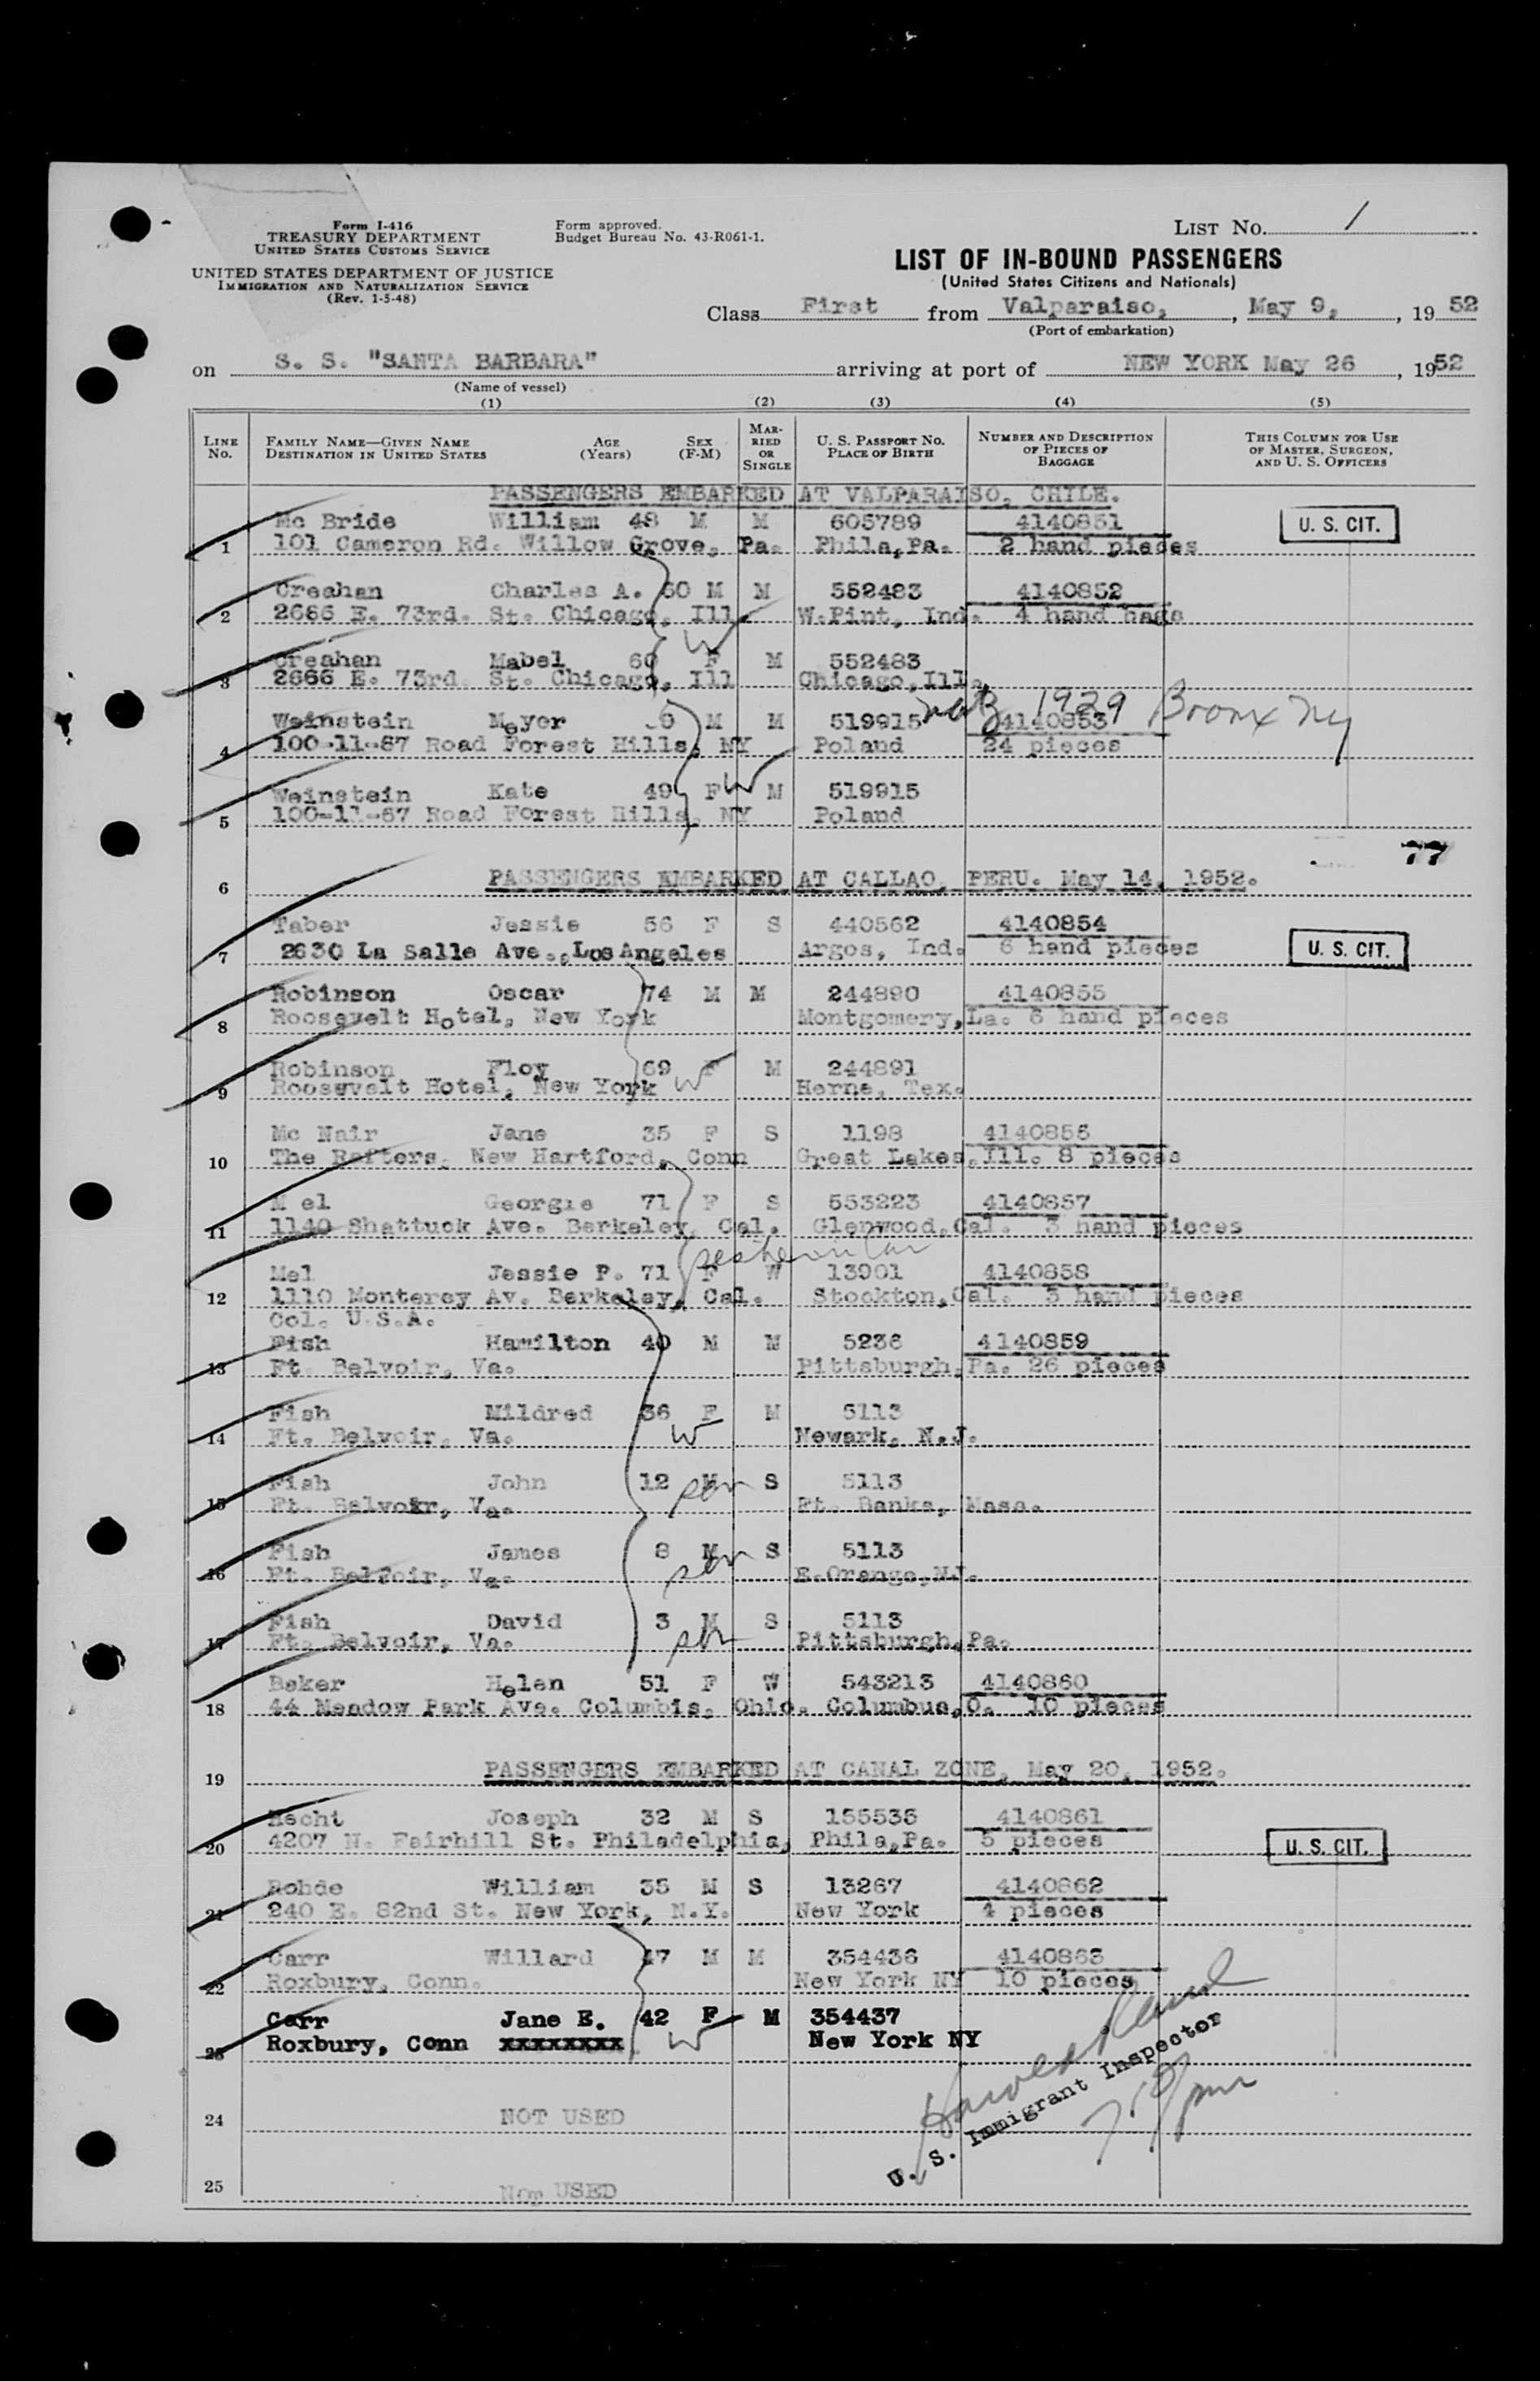 Form I-416
TREASURY DEPARTMENT
UNITED STATES CUSTOMS SERVICE
UNITED STATES DEPARTMENT OF JUSTICE
IMMIGRATION AND NATURALIZATION SERVICE
(Rev. 1-5-48)
Form approved.
Budget Bureau No. 43-R061-1.
LIST No. 1
LIST OF IN-BOUND PASSENGERS
(United States Citizens and Nationals)
Class First from Valparaiso, , May 9, , 19 52
(Port of embarkation)
on S. S. "SANTA BARBARA" arriving at port of NEW YORK May 26 , 1952
(Name of vessel)
(1) (2) (3) (4) (5)
LINE No. FAMILY NAME—GIVEN NAME DESTINATION IN UNITED STATES AGE (Years) SEX (F-M) MARRIED OR SINGLE U. S. PASSPORT No. PLACE OF BIRTH NUMBER AND DESCRIPTION OF PIECES OF BAGGAGE THIS COLUMN FOR USE OF MASTER, SURGEON, AND U. S. OFFICERS
PASSENGERS EMBARKED AT VALPARAISO, CHILE.
Mc Bride William 48 M M 605789 4140851 U. S. CIT.
1 101 Cameron Rd. Willow Grove, Pa. Phila,Pa. 2 hand pieces
Creahan Charles A. 60 M M 552483 4140852
2 2666 E. 73rd. St. Chicago, Ill W.Pint, Ind. 4 hand bags
Creahan Mabel 60 F M 552483
W
3 2666 E. 73rd. St. Chicago, Ill Chicago,Ill.
Weinstein Meyer M M 519915 4140853
natz 1929 Bronx Ny
4 100-11-67 Road Forest Hills, NY Poland 24 pieces
Weinstein Kate 49 F W M 519915
5 100-11-67 Road Forest Hills, NY Poland
77
6 PASSENGERS EMBARKED AT CALLAO, PERU. May 14, 1952.
Taber Jessie 56 F S 440562 4140854
7 2630 La Salle Ave.,Los Angeles Argos, Ind. 6 hand pieces U. S. CIT.
Robinson Oscar 74 M M 244890 4140855
8 Roosevelt Hotel, New York Montgomery,La. 6 hand pieces
Robinson Floy 69 F M 244891
W
9 Roosevelt Hotel, New York Herne, Tex.
Mc Nair Jane 35 F S 1198 4140856
10 The Rafters, New Hartford, Conn Great Lakes,Ill. 8 pieces
M el Georgie 71 F S 553223 4140857
11 1140 Shattuck Ave. Berkeley, Cal. Glenwood,Cal. 3 hand pieces
Mel Jessie P. 71 F W 13901 4140858
12 1110 Monterey Av. Berkeley, Cal. Stockton,Cal. 3 hand pieces
Col. U.S.A.
Fish Hamilton 40 M M 5236 4140859
13 Ft. Belvoir, Va. Pittsburgh,Pa. 26 pieces
Fish Mildred 36 F M 5113
14 Ft. Belvoir, Va. W Newark, N.J.
Fish John 12 M S 5113
son
15 Ft. Belvoir, Va. Ft. Banks, Mass.
Fish James 8 M S 5113
son
16 Ft. Belvoir, Va. E.Orange,NJ.
Fish David 3 M S 5113
son
17 Ft. Belvoir, Va. Pittsburgh,Pa.
Baker Helen 51 F W 543213 4140860
18 44 Meadow Park Ave. Columbis, Ohio. Columbus,O. 10 pieces
19 PASSENGERS EMBARKED AT CANAL ZONE, May 20, 1952.
Hecht Joseph 32 M S 155536 4140861
20 4207 N. Fairhill St. Philadelphia, Phila,Pa. 5 pieces U. S. CIT.
Rohde William 35 M S 13267 4140862
21 240 E. 82nd St. New York, N.Y. New York 4 pieces
Carr Willard 47 M M 354436 4140863
22 Roxbury, Conn. New York NY 10 pieces
Carr Jane E. 42 F M 354437
W
23 Roxbury, Conn xxxxxxxx New York NY
U. S. Immigrant Inspector
24 NOT USED
25 Not USED